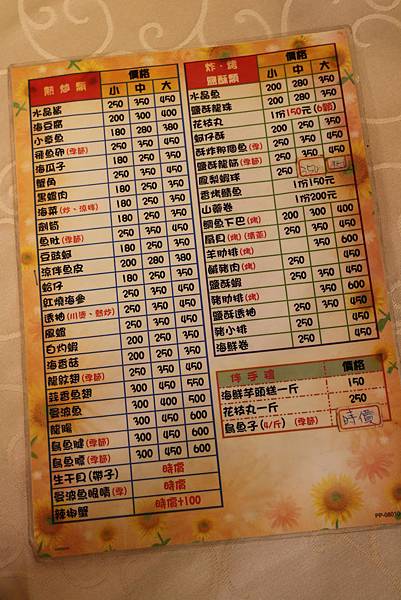 熱炒類 價格
小 中 大
水晶鯊 250 350 450
海豆腐 200 280 350
小章魚 180 280 380
魚卵(季節) 250 350 450
海瓜子 180 250 350
蟹角 180 250 350
黑蝦肉 180 250 350
海菜(炒、涼拌) 180 250 350
劍筍 180 250 350
魚肚(季節) 250 350 450
豆豉蚵 180 250 350
涼拌魚皮 200 280 380
蛤仔 180 250 350
紅燒海參 250 350 450
透抽(川燙、熱炒) 250 350 450
風螺 250 350 450
白灼蝦 200 300 400
海香菇 250 350 450
龍紋翅(季節) 250 350 450
蒜香魚翅 300 450 550
曼波魚 300 450 600
龍腸 300 400 500
烏魚(季節) 300 450 600
烏魚(季節) 300 450 600
生干貝(帶子) 時價
曼波魚眼睛(季) 時價
辣椒蟹 時價+100
炸、烤
鹽酥類 價格
小 中 大
水晶魚 200 280 350
鹽酥龍珠 200 280 350
花枝丸 1份150元(6顆)
蚵仔酥 200 250 350
酥炸那個魚(季) 250 350 450
鹽酥龍筋(季節) 250 350 450
鳳梨蝦球 250
香烤鯖魚 1份150元
山藥卷 1份200元
鯛魚下巴(烤) 200 300 400
扇貝(烤)(清蒸) 250 350 450
羊肋排(烤) 350 600
鹹豬肉(烤) 250 350 450
鹽酥蝦 250 350 450
豬肋排(烤) 350 600
鹽酥透抽 250 350 450
豬小排 250 350 450
海鮮卷 250 350 450
伴手禮 價格
海鮮芋頭糕一斤 150
花枝丸一斤 250
烏魚子(4/斤)(季節) 時價